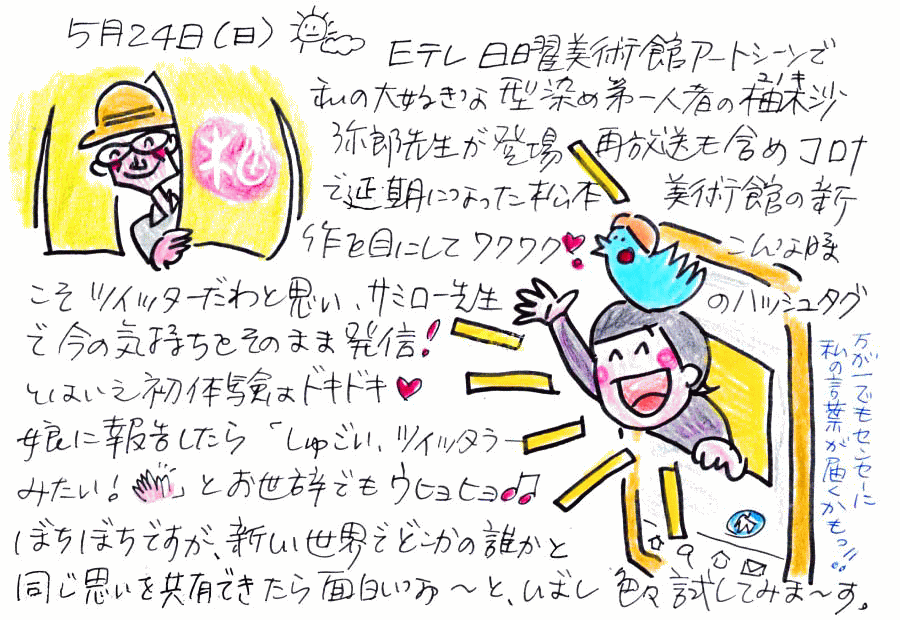 5月24日(日)
Eテレ 日曜美術館アートシーンで
私の大好きな 型染め第一人者の柚木沙
ユノキ
弥郎先生が登場 再放送も含めコロナ
で延期になった松本 美術館の新
作を目にしてワクワク こんな時
こそツイッターだわと思い、サミロー先生 のハッシュタグ
で今の気持ちをそのまま発信!
とはいえ初体験はドキドキ
娘に報告したら「しゅごい、ツイッタラー
みたい!」とお世辞でもウヒョヒョ♫
ぼちぼちですが、新しい世界でどこかの誰かと
同じ思いを共有できたら面白いなぁ〜と、しばし 色々試してみま〜す。
万が一でもセンセーに
私の言葉が届くかもっ!!